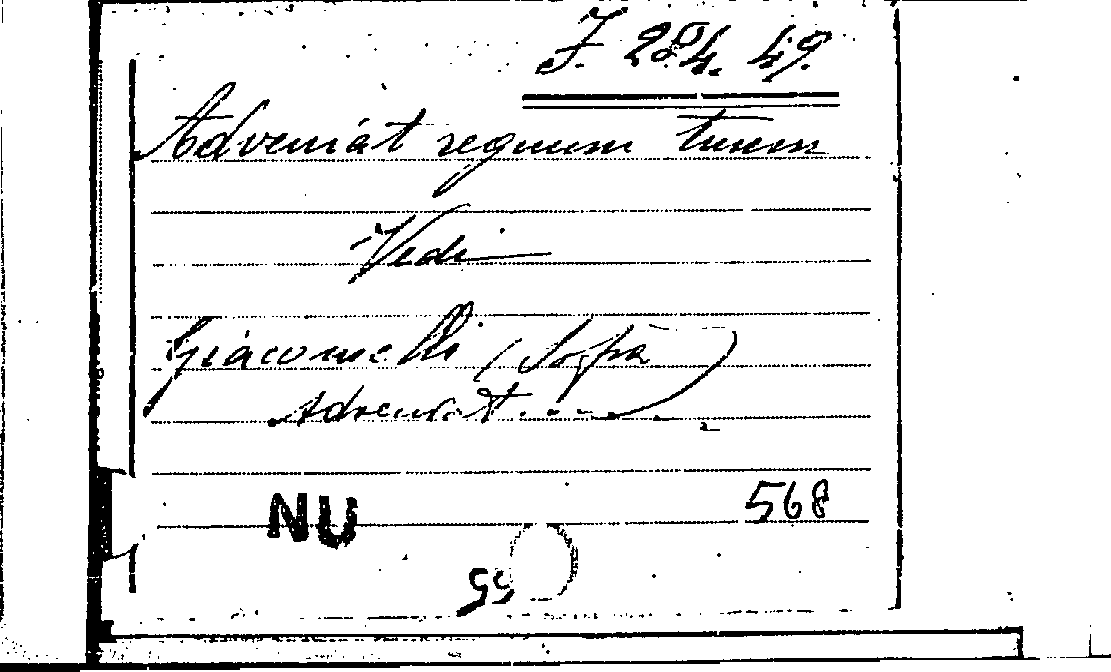 F. 28.4. 49.
Adveniat regnum tuum
Vedi
Giacomelli (Sopra
Adveniat....)
NU 568
55